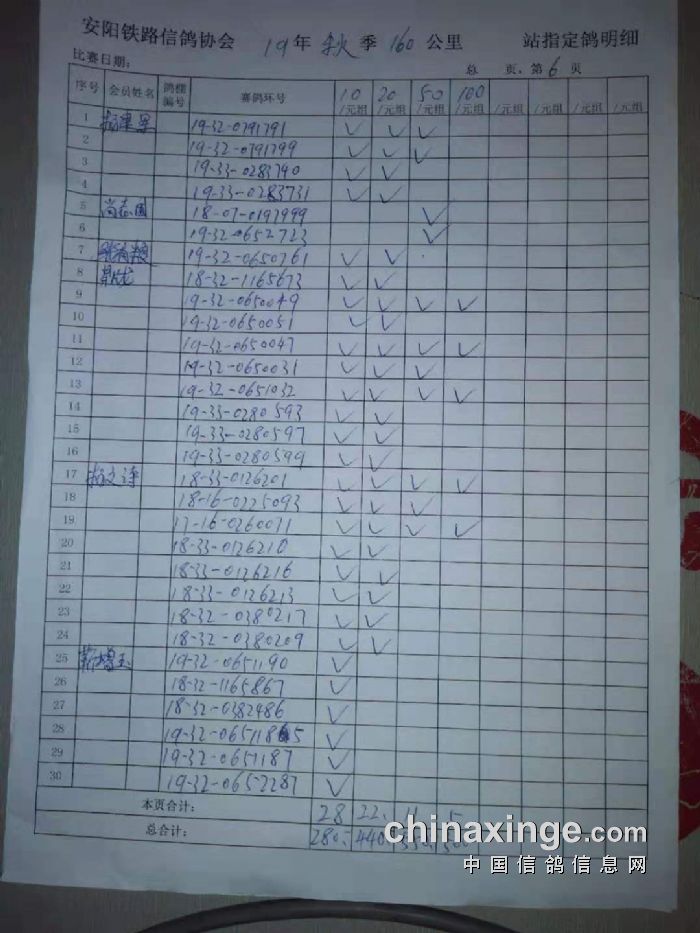 安阳铁路信鸽协会 19年 秋 季 160 公里 站指定鸽明细
比赛日期: 总 页,第 6 页
序号 会员姓名 鸽棚编号 赛鸽环号 10/元组 20/元组 50/元组 100/元组 /元组 /元组 /元组 /元组
1 19-32-0791791 ✓ ✓ ✓
2 19-32-0791799 ✓ ✓ ✓
3 19-33-0283740 ✓ ✓
4 19-33-0283731 ✓ ✓
5 尚志国 18-07-0197999 ✓
6 19-32-0652723 ✓
7 19-32-0650761 ✓ ✓
8 18-32-1165673 ✓ ✓
9 19-32-0650049 ✓ ✓ ✓ ✓
10 19-32-0650051 ✓ ✓
11 19-32-0650047 ✓ ✓ ✓ ✓
12 19-32-0650031 ✓ ✓ ✓
13 19-32-0651032 ✓ ✓ ✓ ✓
14 19-33-0280593 ✓ ✓
15 19-33-0280597 ✓ ✓
16 19-33-0280599 ✓ ✓
17 杨文涛 18-33-0126201 ✓ ✓ ✓ ✓
18 18-16-0225093 ✓ ✓ ✓
19 17-16-0260071 ✓ ✓ ✓ ✓
20 18-33-0126210 ✓ ✓
21 18-33-0126216 ✓ ✓
22 18-33-0126213 ✓ ✓
23 18-32-0380217 ✓ ✓
24 18-32-0380209 ✓ ✓
25 靳增玉 19-32-0651190 ✓
26 18-32-1165867 ✓
27 18-32-0382486 ✓
28 19-32-0651185 ✓
29 19-32-0651187 ✓
30 19-32-0652287 ✓
本页合计: 28 22. 11 5
总合计: 280. 440. 550. 500
chinaxinge.com
中国信鸽信息网